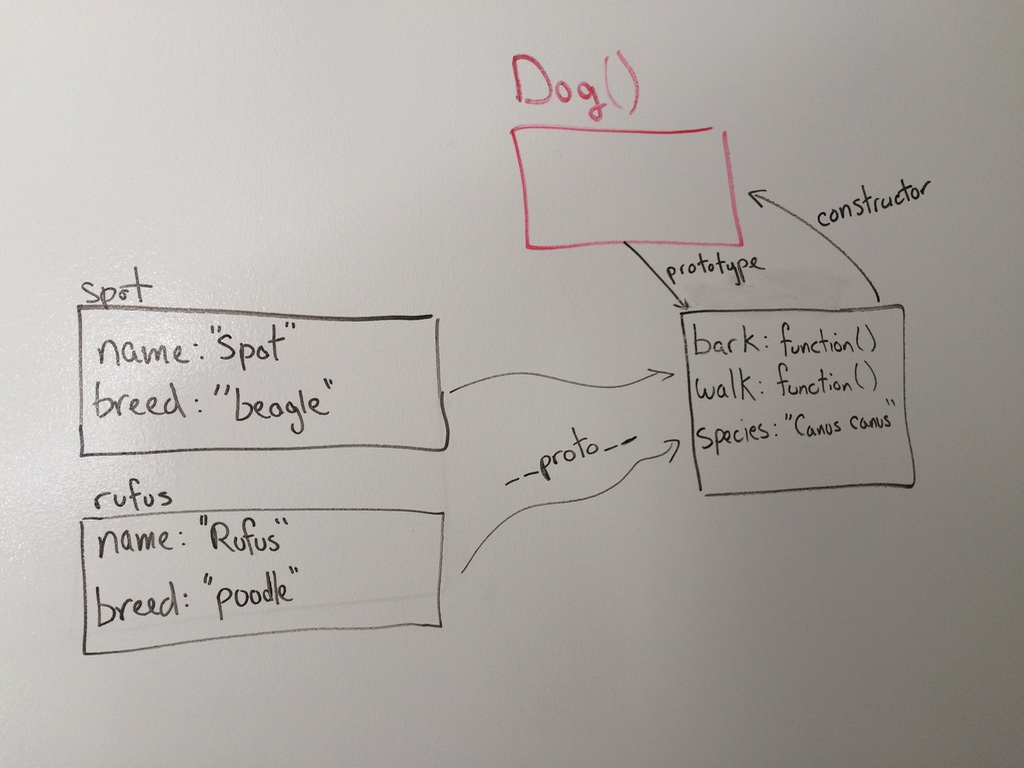 Dog()
constructor
prototype
spot
name: "Spot"
breed: "beagle"
bark: function()
walk: function()
species: "Canus canus"
__proto__
rufus
name: "Rufus"
breed: "poodle"